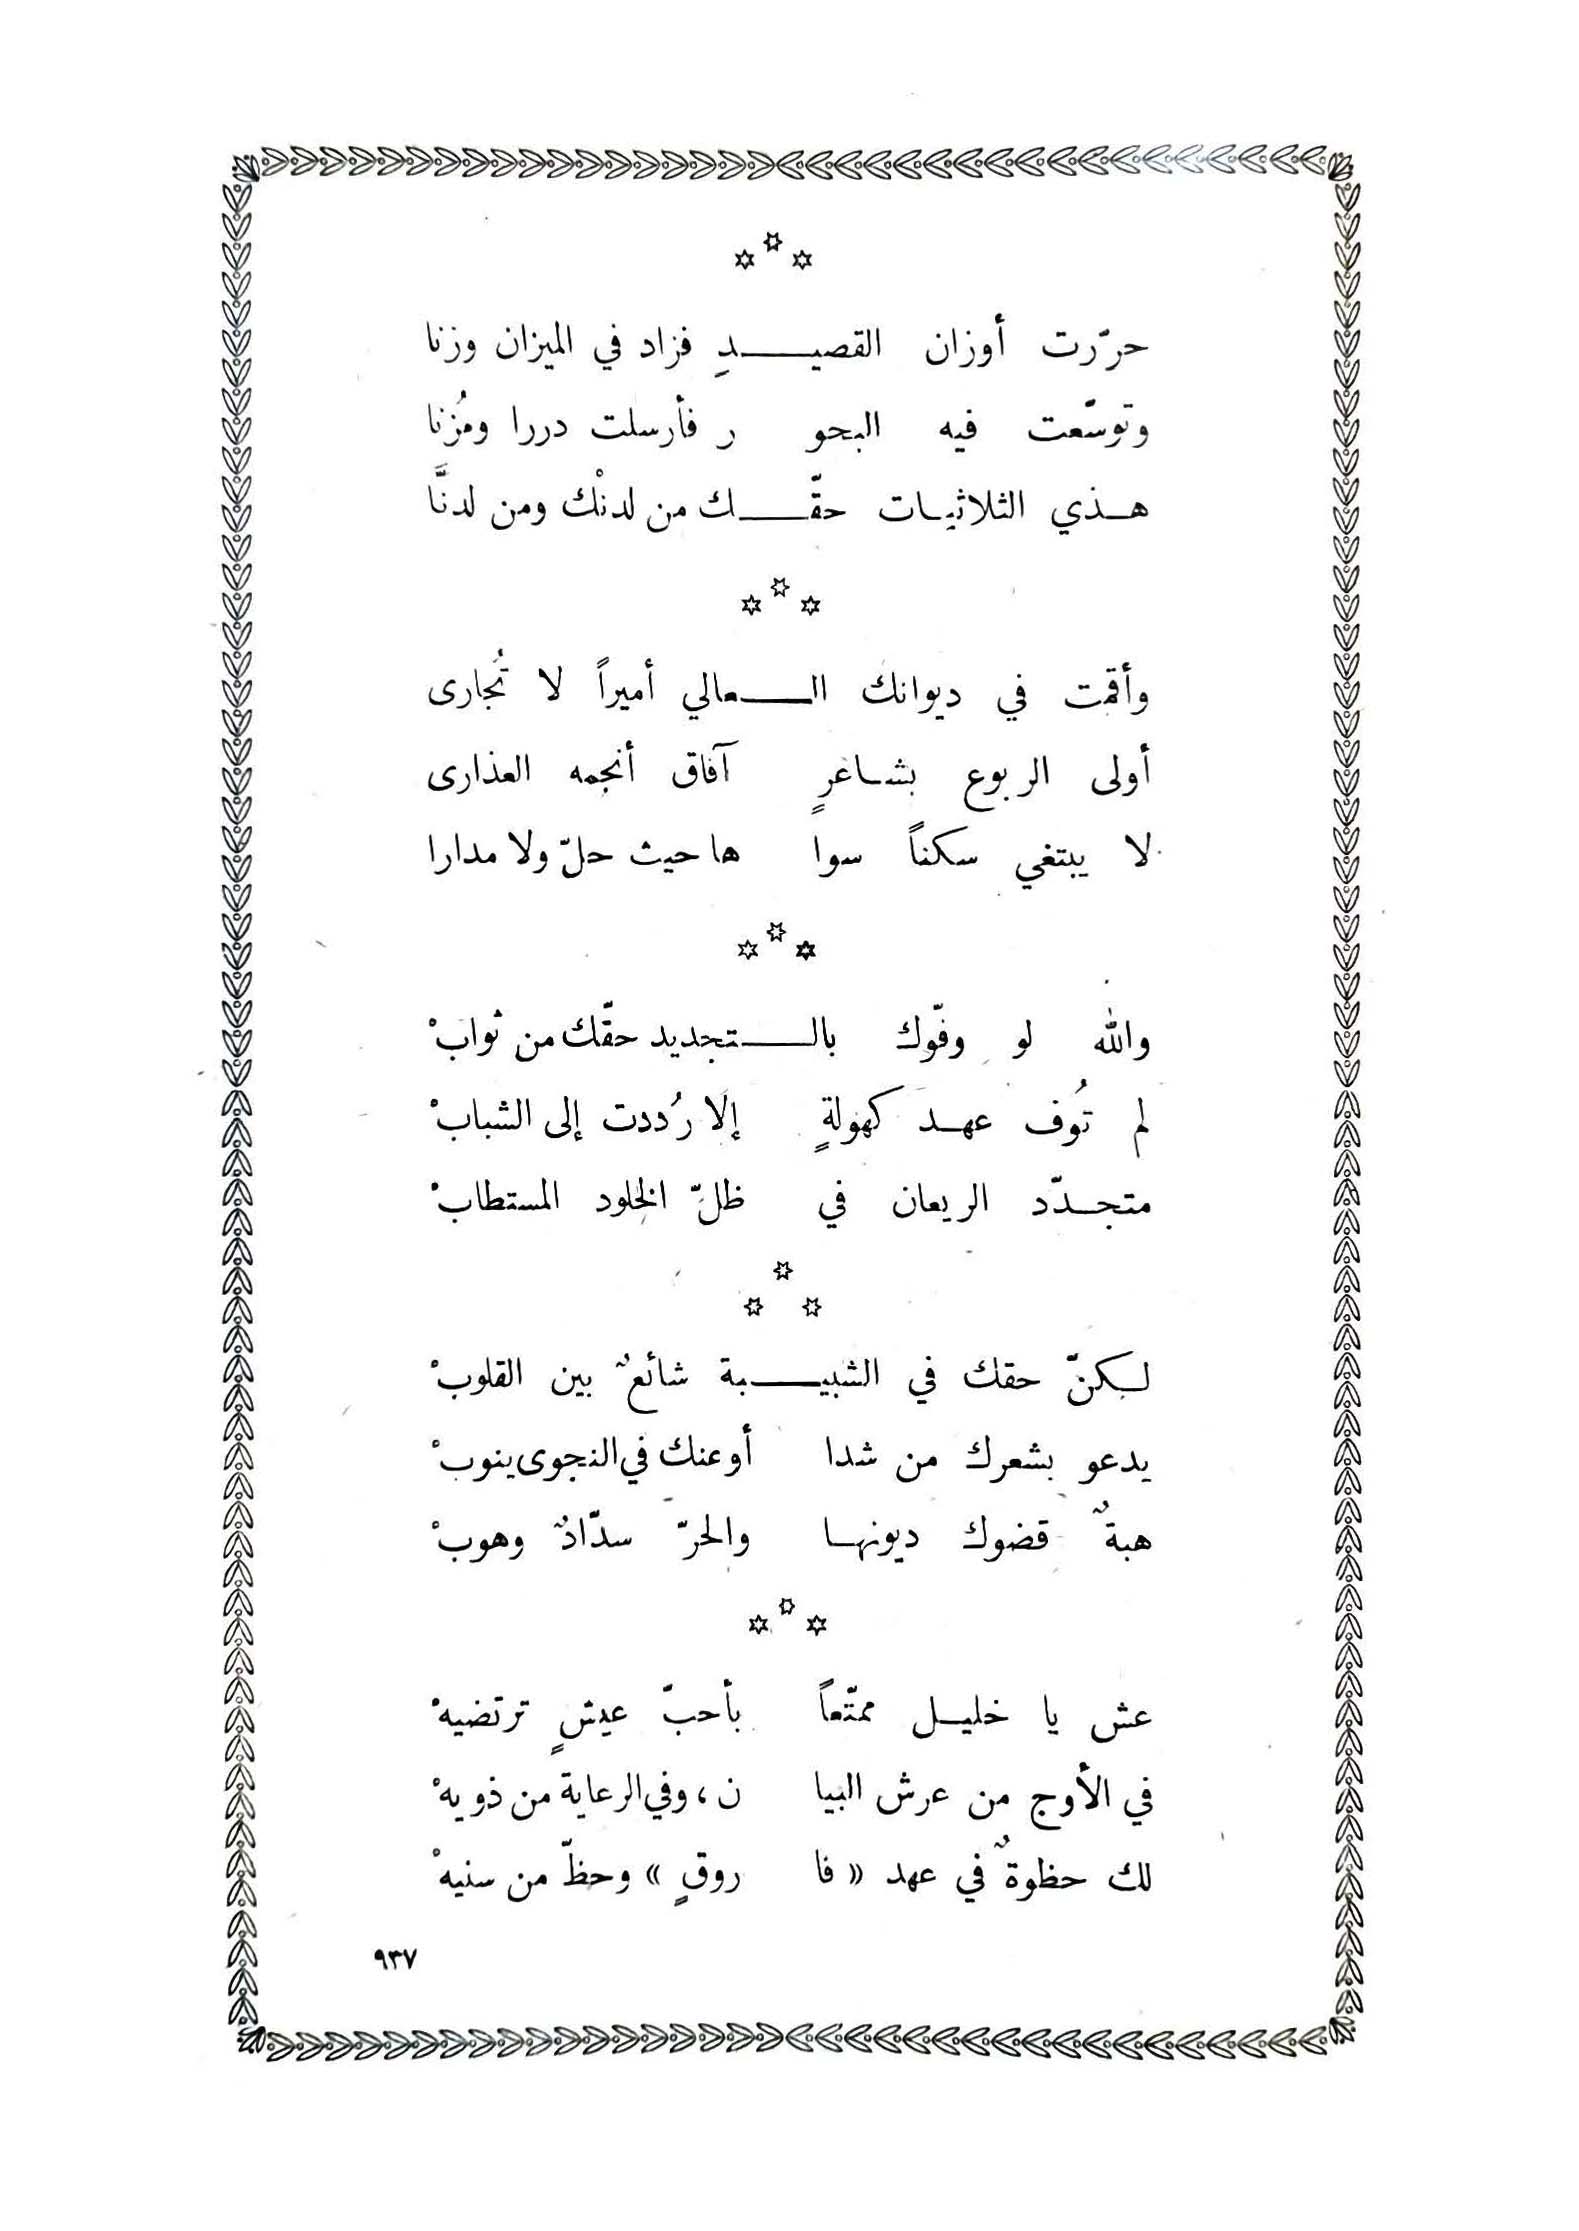 حرّرت أوزان القصيـــدِ فزاد في الميزان وزنا
وتوسّعت فيه البحو ر فأرسلت دررا ومُزنا
هـذي الثلاثيـات حقّـــك من لدنْك ومن لدنَّا
وأقمت في ديوانك الـــعالي أميراً لا تُجارى
أولى الربوع بشـاعرٍ آفاق أنجمه العذارى
لا يبتغي سكناً سوا ها حيث حلّ ولا مدارا
والله لو وفّوك بالـــتجديد حقّك من ثوابْ
لم تُوف عهـد كهولةٍ إلا رُددت إلى الشبابْ
متجـدّد الريعان في ظلِّ الخلود المستطابْ
لـكنّ حقك في الشبيـــبة شائعٌ بين القلوبْ
يدعو بشعرك من شدا أو عنك في النجوى ينوبْ
هبةٌ قضوك ديونهـا والحرّ سدّادٌ وهوبْ
عش يا خليـل ممتّعاً بأحبّ عيشٍ ترتضيهْ
في الأوج من عرش البيا ن ، وفي الرعاية من ذويهْ
لك حظوةٌ في عهد « فا روقٍ » وحظّ من سنيهْ
٩٣٧